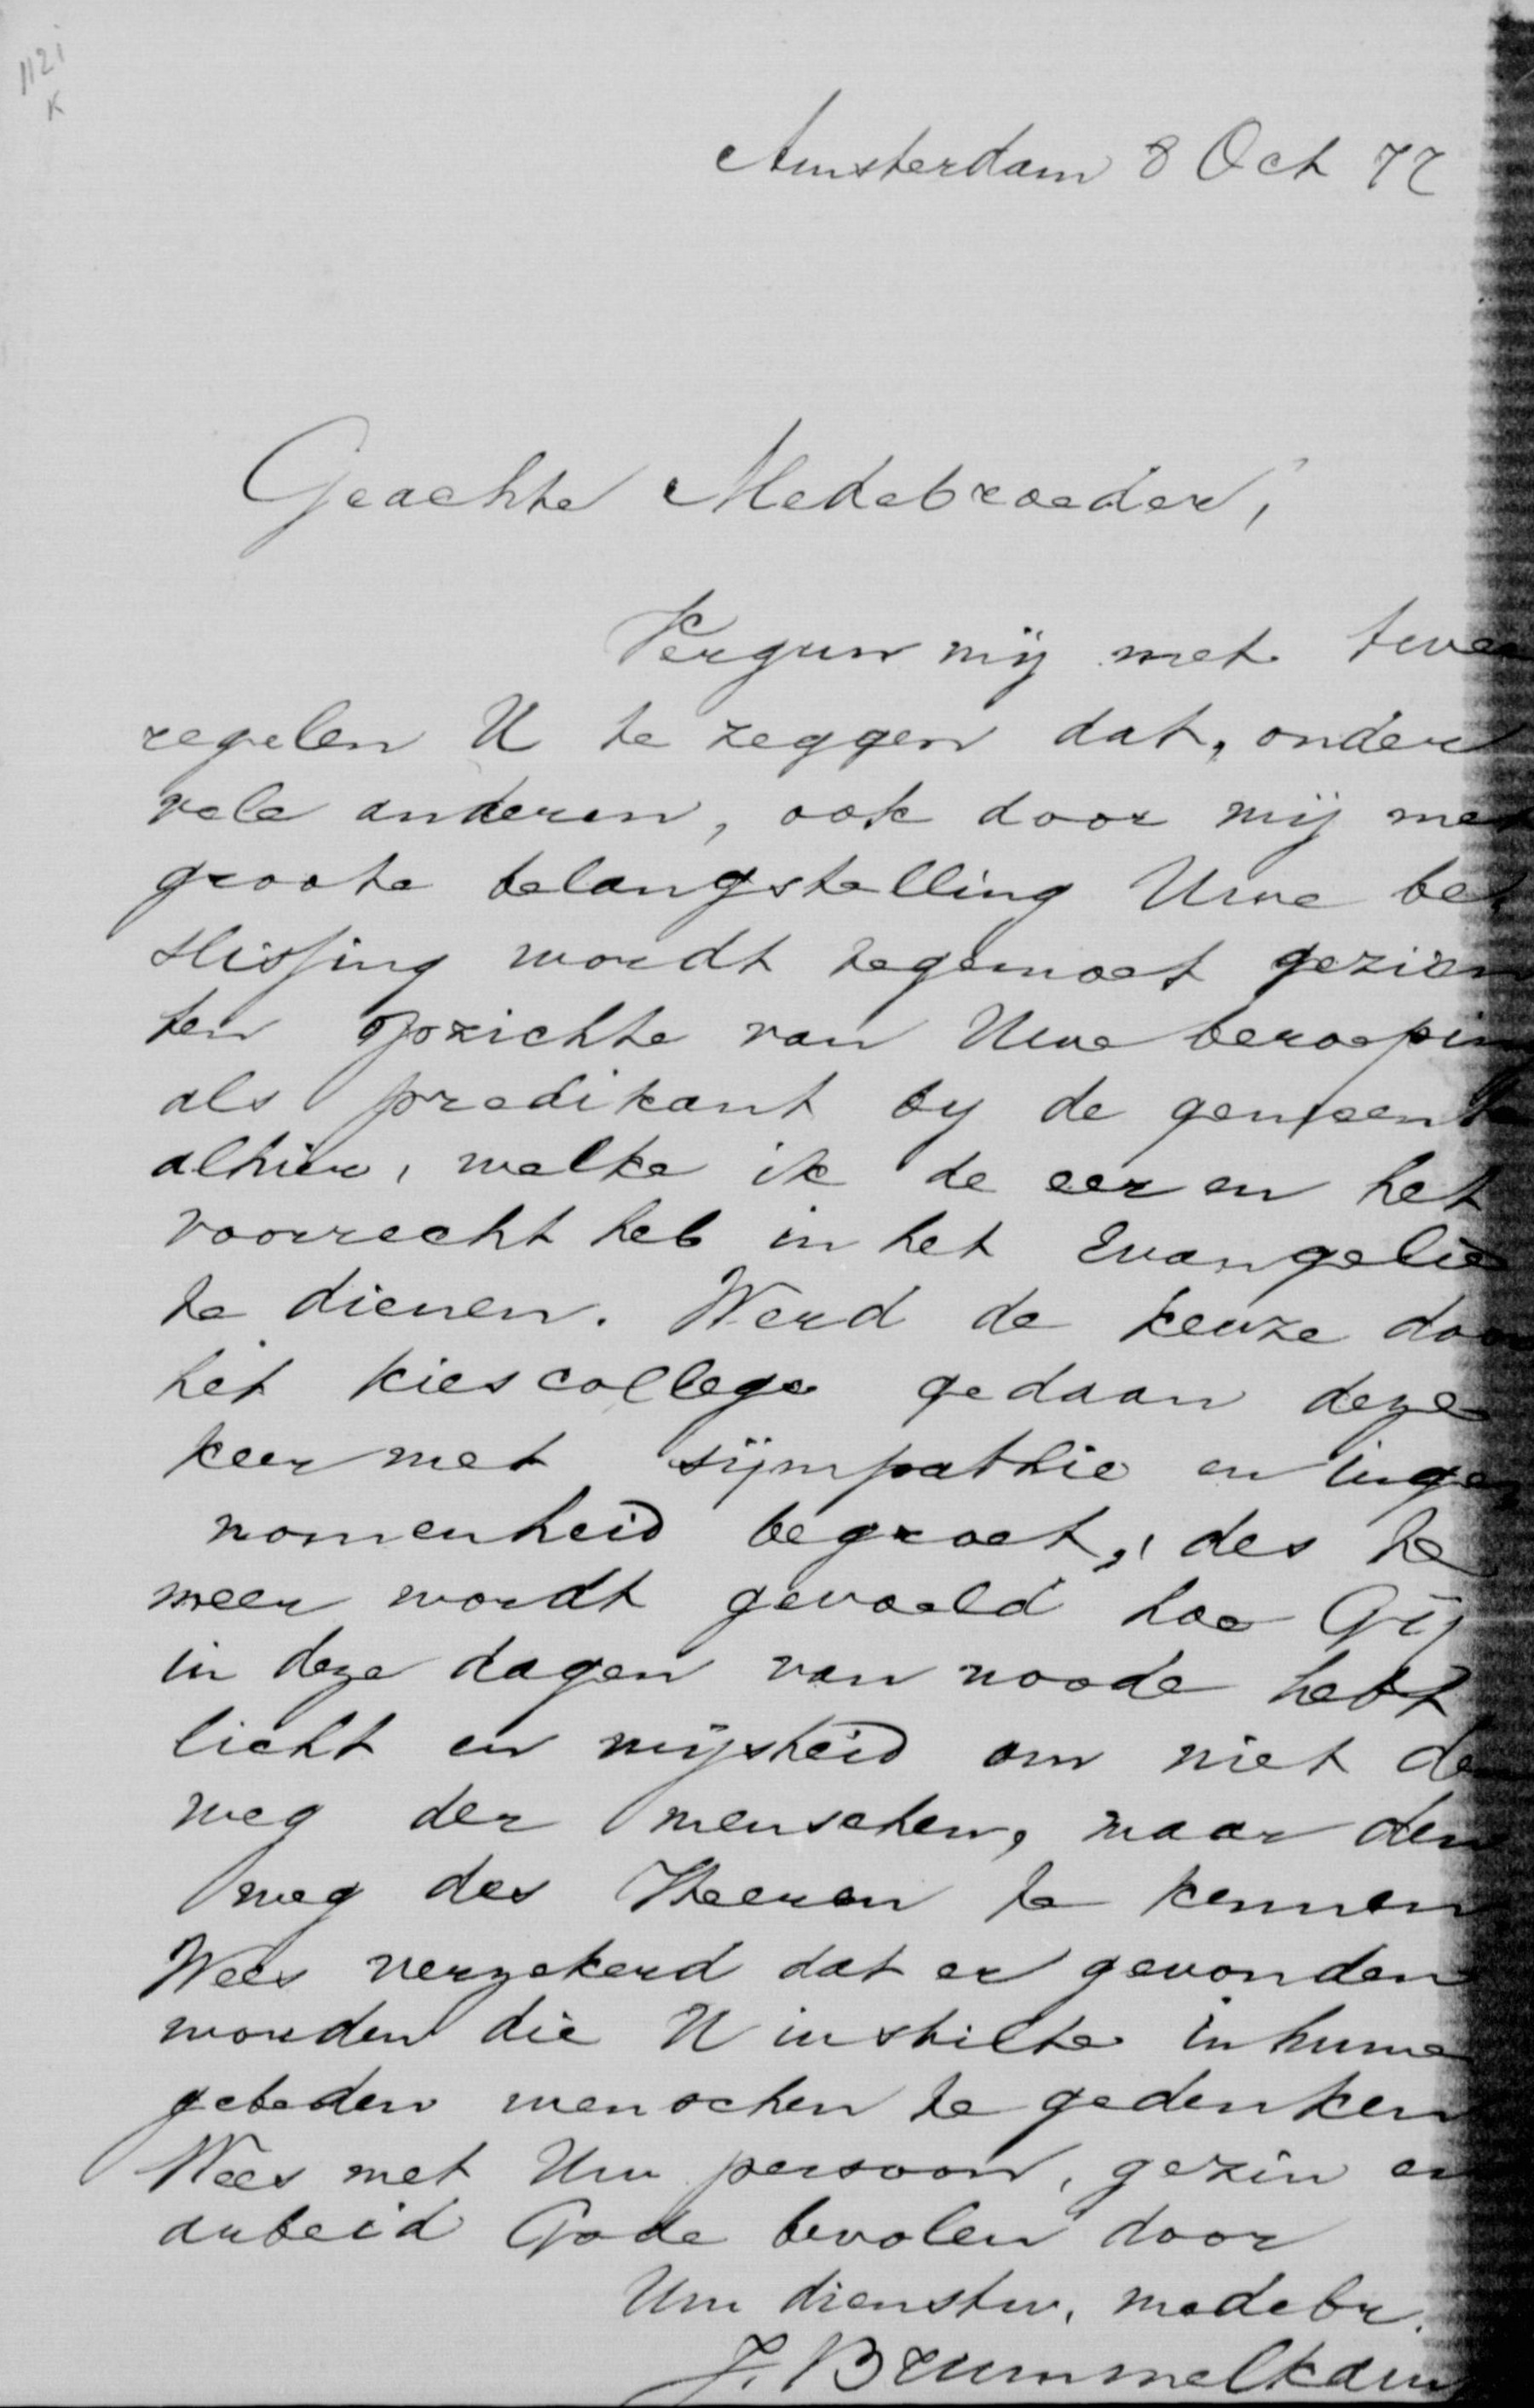 1121
K
Amsterdam 8 Oct 77
Geachte Medebroeder,
Vergun mij met twee
regelen U te zeggen dat, onder
vele anderen, ook door mij met
groote belangstelling Uwe be-
slissing wordt tegemoet gezien
ten opzichte van Uwe beroeping
als predikant by de gemeente
alhier, welke ik de eer en het
voorrecht heb in het Evangelie
te dienen. Werd de keuze door
het kiescollege gedaan deze
keer met sijmpathie en inge-
nomenheid begroet, des te
meer wordt gevoeld hoe Gij
in deze dagen van noode hebt
licht en wijsheid om niet den
weg der menschen, maar den
weg des Heeren te kennen
Wees verzekerd dat er gevonden
worden die U in stilte in hunne
gebeden wenschen te gedenken
Wees met Uw persoon, gezin en
arbeid Gode bevolen door
Uw dienstw. medebr.
J. Brummelkamp